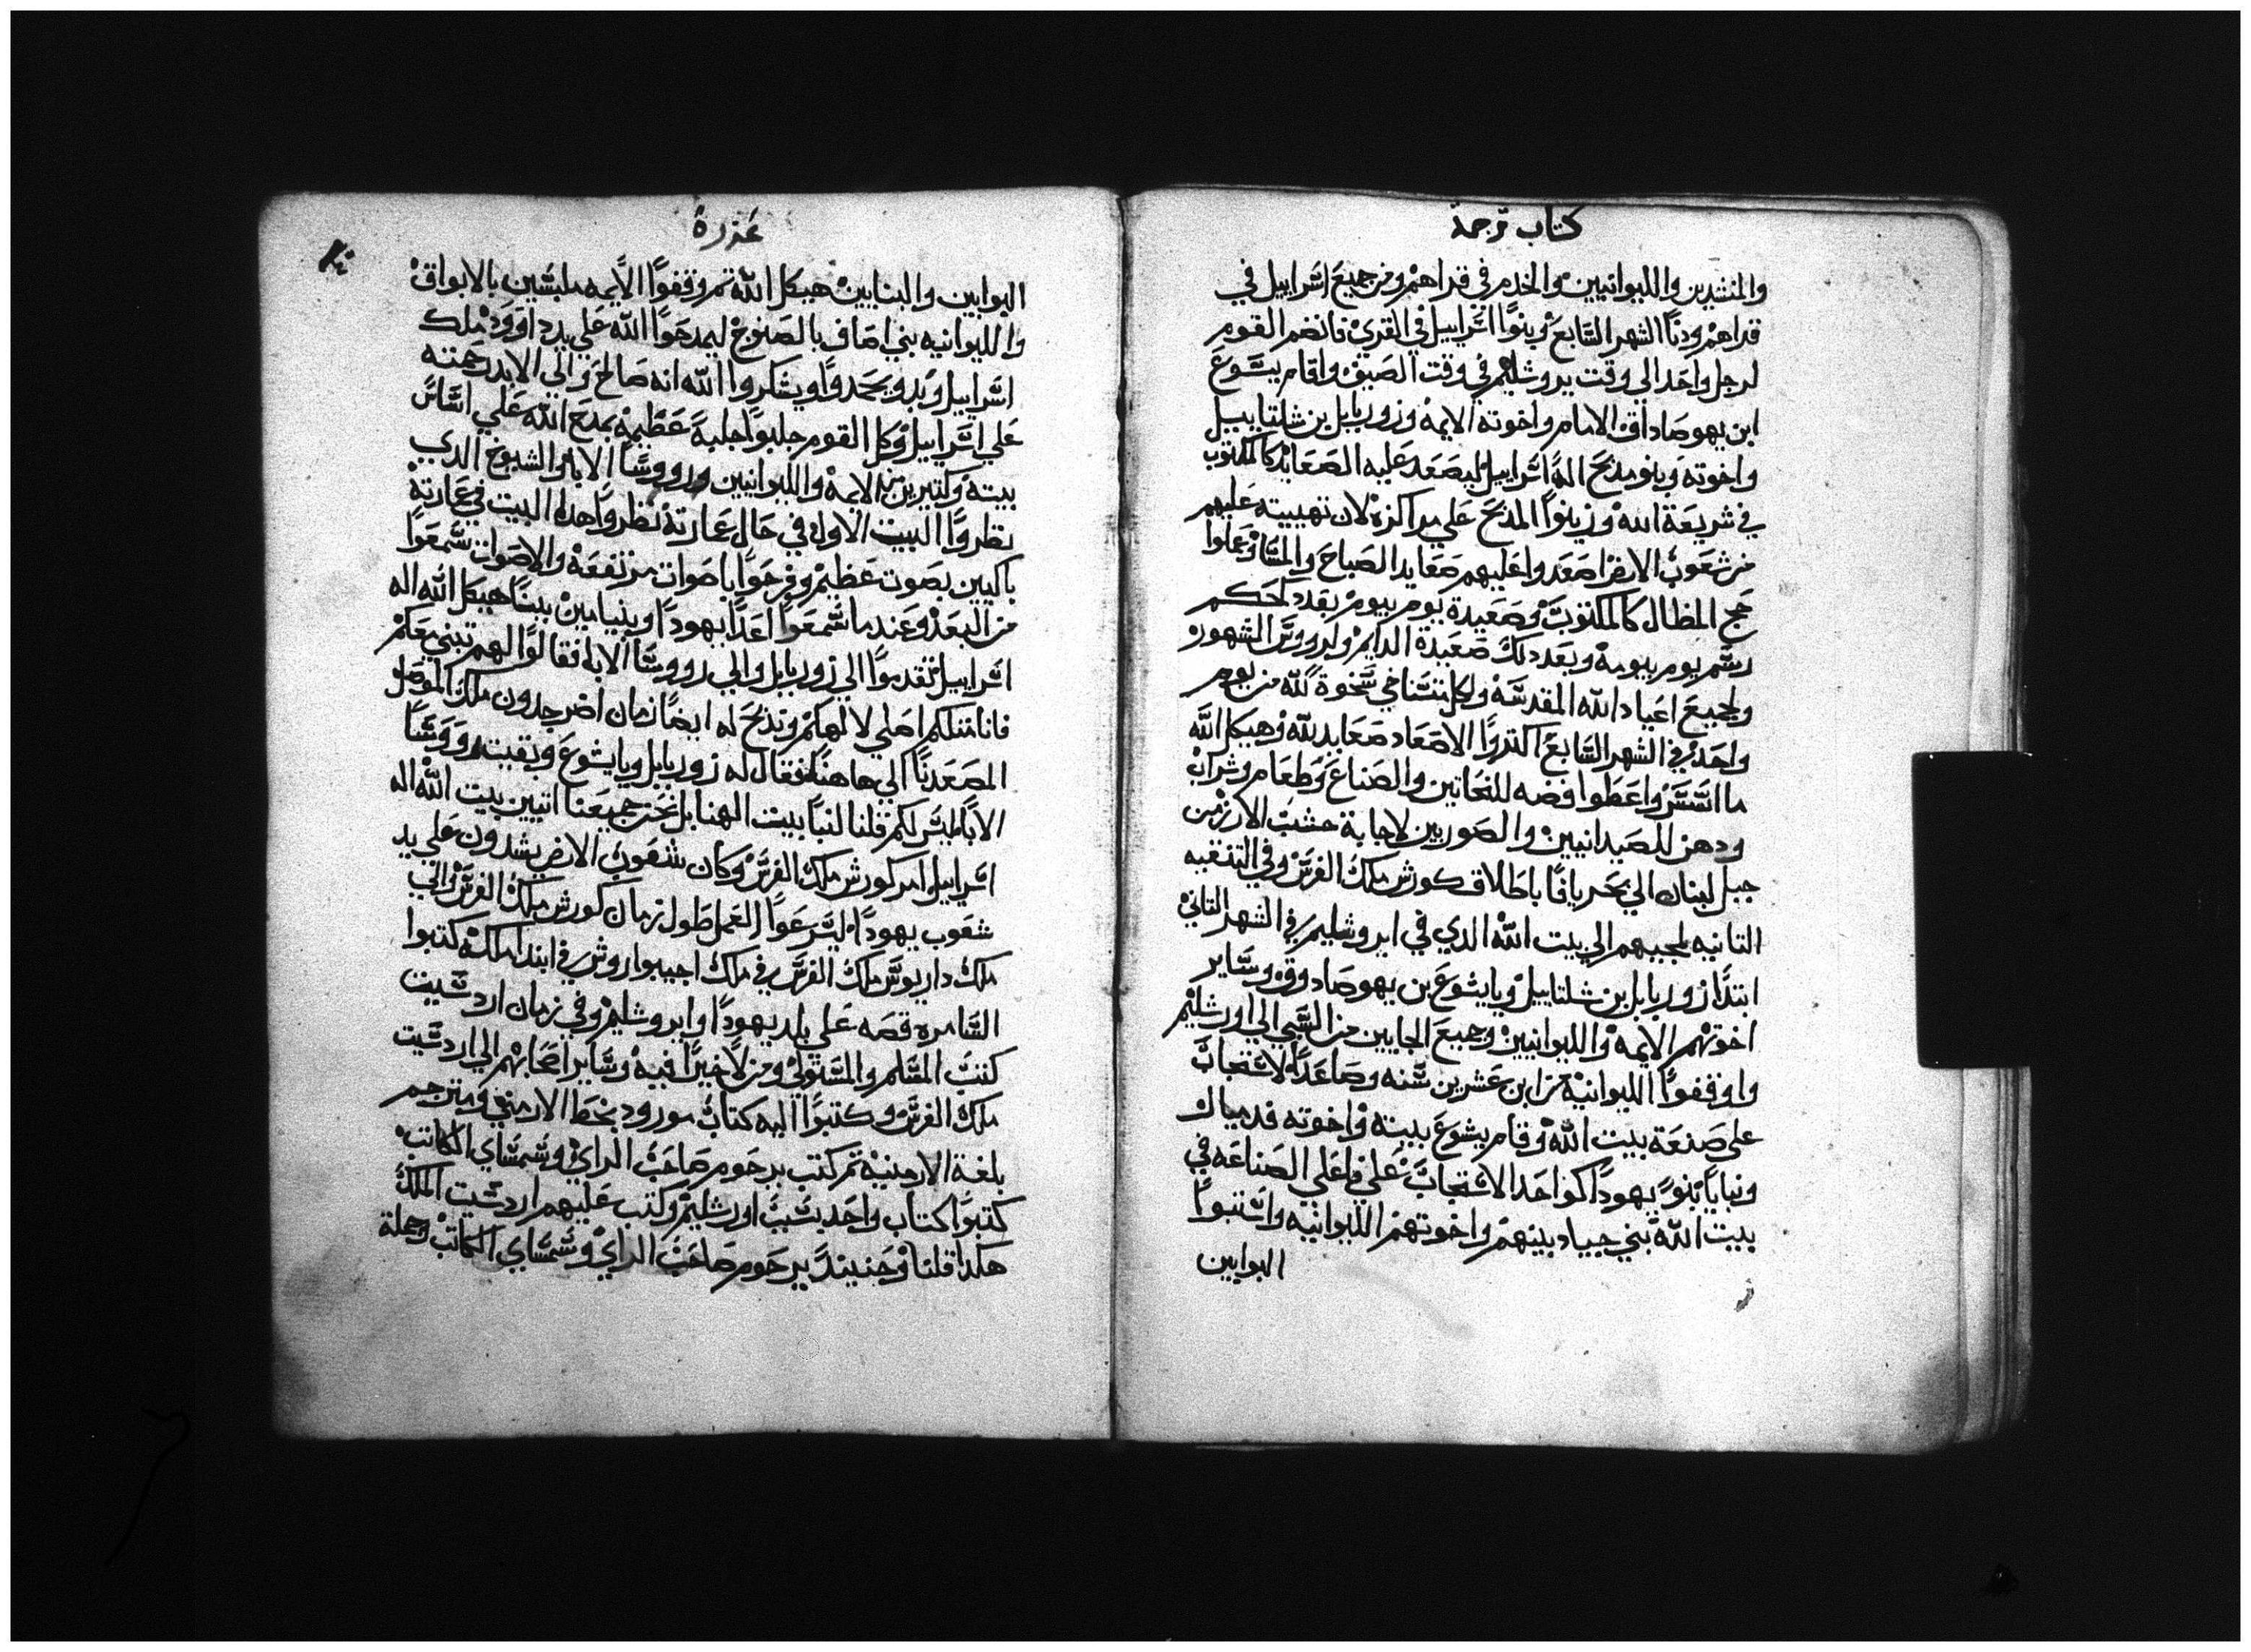 كتاب ترجمة
والمنشدين والليوانيين والخدم في قداهم ومن جميع اسراييل في
قداهم ودنا الشهر السابع وبنوا اسراييل في القري فانضم القوم
لرجل واحد الي وقت يروشليم في وقت الصيف واقام يشوع
ابن يهوصاداق الامام واخوته الايمه وزوربابل بن شلتاييل
واخوته وبنو مدبح اله اسراييل ليصعد عليه الصعايد كالمكتوب
في شريعة الله وزينوا المدبح علي مراكزه لان تهيبته عليهم
من شعوب الارض اصعدوا عليهم صعايد الصباح والمسا وعملوا
حج المظال كالمكتوب وصعيدة يوم بيوم بعدد كحكم
رسم يوم بيومه وبعد دلك صعيدة الدايم ولرووس الشهور
ولجميع اعياد الله المقدسه ولكل متسناخي سخوة لله من يوم
واحد في الشهر السابع اكتروا الاصعاد صعايد لله وهيكل الله
ما اتسس واعطوا فضه للنحاتين والصناع وطعام وشراب
ودهن للصيدانيين والصوريين لاجابة خشب الارز من
جبل لبنان الي بحر يافا باطلاق كورش ملك الفرس وفي التنقيه
التانيه لمجيهم الي بيت الله الدي في ايروشليم في الشهر التاني
ابتدا زوربابل بن شلتاييل ويايشوع بن يهوصادوق وساير
اخوتهم الايمه والليوانيين وجميع الجايين من السبي الي اورشليم
واوقفوا الليوانيه من ابن عشرين سنه وصاعدا لاستحاب
علي صنعة بيت الله وقام يشوع ببيته واخوته قدمياك
وبنايا بنو يهودا كواحد الاستحاب علي فاعلي الصناعه في
بيت الله بني حيياد بينهم واخوتهم الليوانيه واستنبوا
البوابين
عزره
البوابين والبنايين هيكل الله تم وقفوا الايمه ملبسين بالابواق
والليوانيه بني اصاف بالصنوج ليمدحوا الله علي يد داوود ملك
اسراييل وبدو يحمدوا ويشكروا الله انه صالح والي الابد رحمته
علي اسراييل وكل القوم جلبوا جلبة عظيمه بمدح الله علي اساس
بيته وكتيرين من الايمه والليوانيين ورووسا الابا والشيوخ الدي
نظروا البيت الاول في حال عمارته نظروا هدا البيت في عمارته
باكيين بصوت عظيم وفرحوا باصوات مرتفعه والاصوات تسمعوا
من البعد وعند ما سمعوا اعدا يهودا وبنيامين بينا هيكل الله اله
اسراييل تقدموا الي زوربابل والي رووسا الابا فقالوا لهم نبني معكم
فانا متلكم اصلي لالهكم وندبح له ايضا زمان اضرجدون ملك الموصل
المصعدنا الي هاهنا فقال له زوربابل ويايشوع وبقيت رووسا
الابا ليس لكم قلنا لنبا بيت الهنا بل نحن جميعنا اتيين بيت الله اله
اسراييل امر كورش ملك الفرس وكان شعوب الارض يشدون علي يد
شعوب يهودا ليسرعوا العمل طول زمان كورش ملك الفرس والي
ملك داريوس ملك الفرس في ملك احيبواروش في ابتدا ملكه كتبوا
السامره قصه علي بلد يهودا وايروشليم وفي زمان اردشيت
كتب المسلم والمستولي ومن لا خيرا فيه وساير اصحابهم الي اردشيت
ملك الفرس وكتبوا اليه كتاب مورود بخط الارمني ومترجم
بلغة الارمنيه تم كتب برحوم صاحب الراي وشمساي الكاتب
كتبوا كتاب واحد بسبب اورشليم وكتب عليهم اردشت الملك
هكدا قلنا وحينيد برحوم صاحب الراي وشمساي الكاتب وجملة